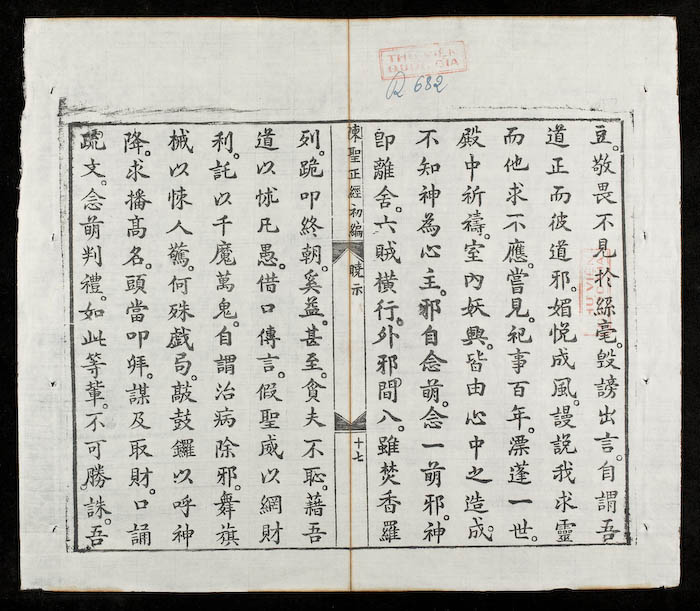 THƯ VIỆN
QUỐC GIA
R 682
豆。敬畏不見於絲毫。毀謗出言。自謂吾
道正而彼道邪。媚悅成風。謾說我求靈
而他求不應。嘗見。祀事百年。漂蓬一世。
殿中祈禱。室內妖興。皆由心中之造成。
不知神為心主。邪自念萌。念一萌邪。神
即離舍。六賊橫行。外邪間入。雖焚香羅
陳聖正經初編 曉示 十七
列。跪叩終朝。奚益。甚至。貪夫不恥。藉吾
道以怵凡愚。借口傳言。假聖威以網財
利。託以千魔萬鬼。自謂治病除邪。舞旗
械以悚人驚。何殊戲局。敲鼓鑼以呼神
降。求播高名。頭當叩拜。謀及取財。口誦
疏文。念萌判禮。如此等輩。不可勝誅。吾